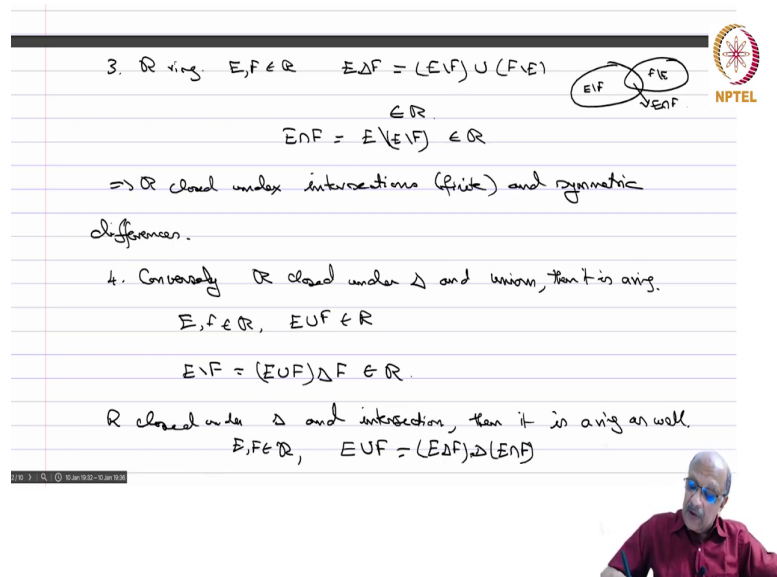 3. R ring. E,F ∈ R   E∆F = (E\F) ∪ (F\E)
E\F F\E
E∩F
NPTEL
∈ R.
E∩F = E\(E\F) ∈ R
=> R closed under intersections (finite) and symmetric
differences.
4. Conversely R closed under ∆ and unions, then it is a ring.
E,F ∈ R, E∪F ∈ R
E\F = (E∪F)∆F ∈ R.
R closed under ∆ and intersection, then it is a ring as well.
E,F ∈ R, E∪F = (E∆F)∆(E∩F)
2/10 10 Jan 19:32 - 10 Jan 19:36